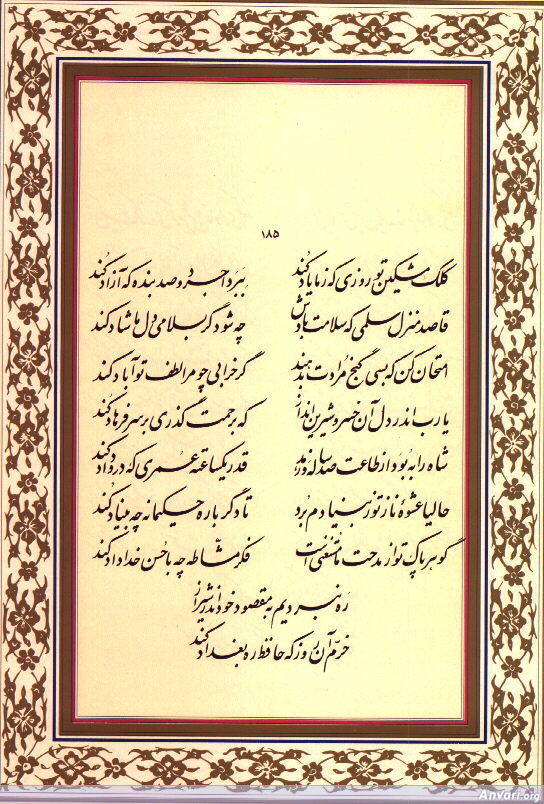 ۱۸۵
کلک مشکین تو روزی که ز ما یاد کند ببرد اجر دو صد بنده که آزاد کند
قاصد منزل سلمی که سلامت بادش چه شود گر بسلامی دل ما شاد کند
امتحان کن که بسی گنج مرادت بدهند گر خرابی چو مرا لطف تو آباد کند
یارب اندر دل آن خسرو شیرین انداز که برحمت گذری بر سر فرهاد کند
شاه را به بود از طاعت صد ساله و زهد قدر یکساعته عمری که درو داد کند
حالیا عشوهٔ ناز تو ز بنیادم برد تا دگر باره حکیمانه چه بنیاد کند
گوهر پاک تو از مدحت ما مستغنی است فکر مشّاطه چه با حسن خداداد کند
ره نبردیم به مقصود خود اندر شیراز
خرّم آن روز که حافظ ره بغداد کند
Anvari.org